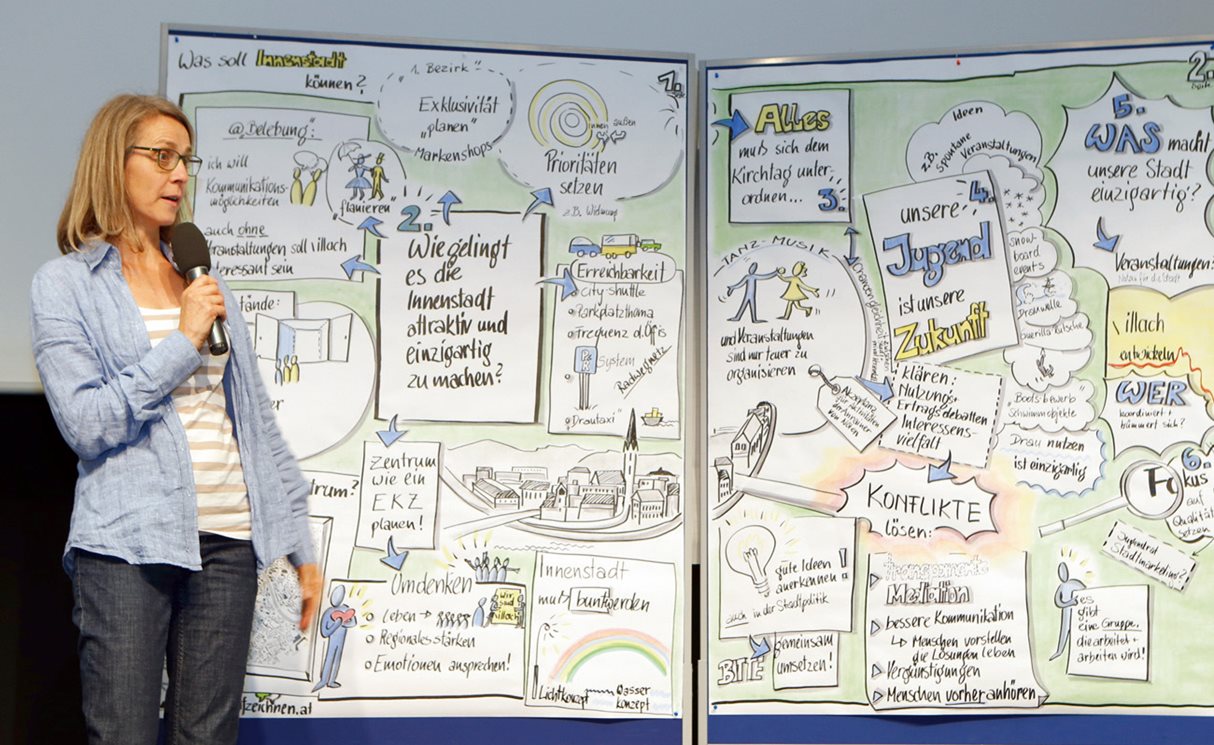 Was soll Innenstadt
können?
1.
"1. Bezirk"
Exklusivität
"planen"
Markenshops
innen
außen
Prioritäten
setzen
z.B. Widmung
@ "Belebung":
ich will
Kommunikations-
möglichkeiten
auch ohne
Veranstaltungen soll villach
interessant sein
"flanieren"
2.
Wie gelingt
es die
Innenstadt
attraktiv und
einzigartig
zu machen?
Erreichbarkeit
City-Shuttle
Parkplatzthema
Frequenz d. Öffis
System
Radwegnetz
"Drautaxi"
Zentrum
wie ein
EKZ
planen!
Umdenken
Leben →
Regionales stärken
Emotionen ansprechen!
Wir
sind
villach
Innenstadt
muß bunt werden
Lichtkonzept
Wasser
konzept
2.
Alles
muß sich dem
Kirchtag unter-
ordnen...
3.
TANZ-MUSIK
und Veranstaltungen
sind nur teuer zu
organisieren
Chancengleichheit
Akzeptanz
für Aktivitäten
klären:
Nutzung:
Ertragsdebatten
Interessens-
vielfalt
Ideen
z.B. spontane
Veranstaltungen
4.
unsere
Jugend
ist unsere
Zukunft
snow-
board
events
Drauwelle
Guerilla Rutsche
Boots bewerb
Schwimmobjekte
Drau nutzen
ist einzigartig
5.
WAS macht
unsere Stadt
einzigartig?
Veranstaltungen?
Nutzen für die Stadt
villach
entwickeln
WER
koordiniert +
kümmert sich?
6.
Fokus
auf
Qualität
setzen
Jugendrat
Stadtmarketing?
KONFLIKTE
lösen:
gute Ideen
anerkennen!
auch in der Stadtpolitik
BITTE
gemeinsam
umsetzen!
transparente
Mediation
bessere Kommunikation
↳ Menschen vorstellen
die Lösungen leben
Vergünstigungen
Menschen vorher anhören
es
gibt
eine Gruppe,
die arbeitet +
arbeiten wird!